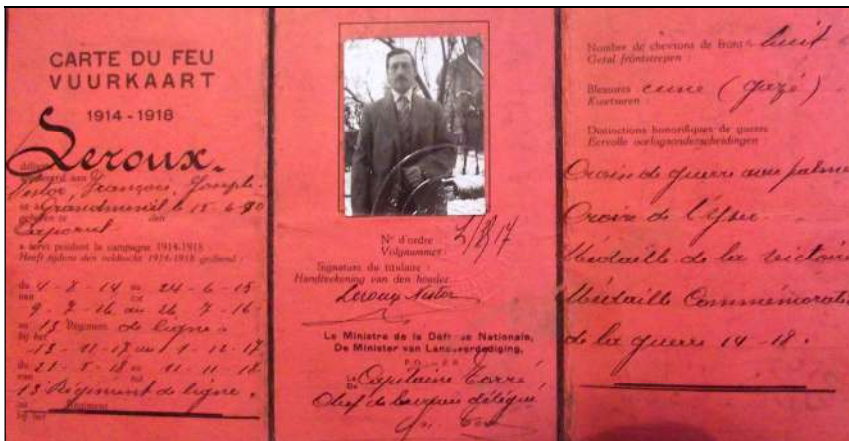 CARTE DU FEU
VUURKAART
1914-1918
Leroux.
délivrée à
Nestor, François, Joseph.
né à Grandmenil le 15-6-90
geboren te den
Caporal
a servi pendant la campagne 1914-1918
Heeft tijdens den veldtocht 1914-1918 gediend :
du 4-8-14 au 24-6-15
van tot
9-7-16 au 26-7-16
au 13 Régiment de ligne
bij het
13-11-17 au 1-12-17
du 21-5-18 au 11-11-18
van tot
13 Régiment de ligne.
au Régiment
bij het
N° d'ordre : L/8/17
Volgnummer :
Signature du titulaire :
Handteekening van den houder
Leroux Nestor
Le Ministre de la Défense Nationale,
De Minister van Landsverdediging,
Le Capitaine Torré
De
Chef de bureau délégué
Nombre de chevrons de front : huit
Getal frontstrepen :
Blessures : une (gazé)
Kwetsuren :
Distinctions honorifiques de guerre
Eervolle oorlogsonderscheidingen
Croix de guerre avec palme
Croix de l'Yser.
Médaille de la victoire
Médaille Commémorati
de la guerre 14-18.